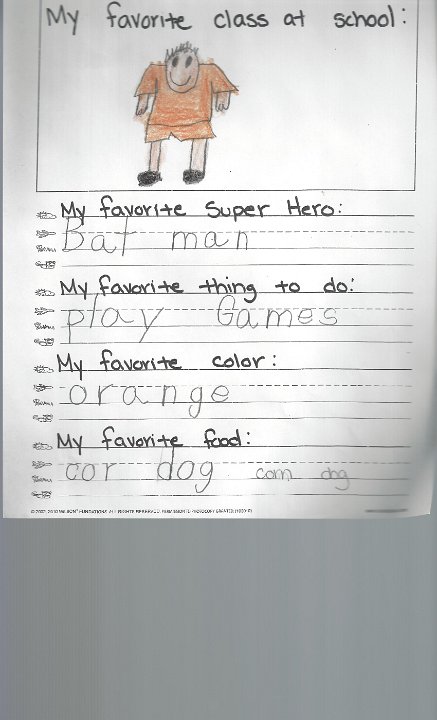 My favorite class at school:
My favorite Super Hero:
Bat man
My favorite thing to do:
play Games
My favorite color:
orange
My favorite food:
cor dog corn dog